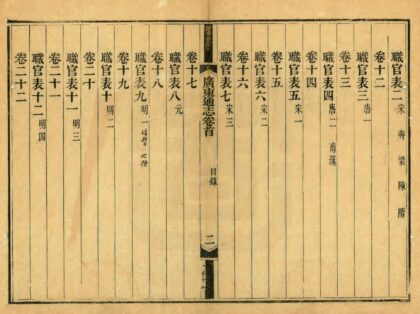 職官表二宋齊梁陳隋
卷十二
職官表三唐一
卷十三
職官表四唐二 南漢
卷十四
職官表五宋一
卷十五
職官表六宋二
卷十六
職官表七宋三
廣東通志卷首 目錄 二
卷十七
職官表八元
卷十八
職官表九明一
卷十九
職官表十明二
卷二十
職官表十一明三
卷二十一
職官表十二明四
卷二十二